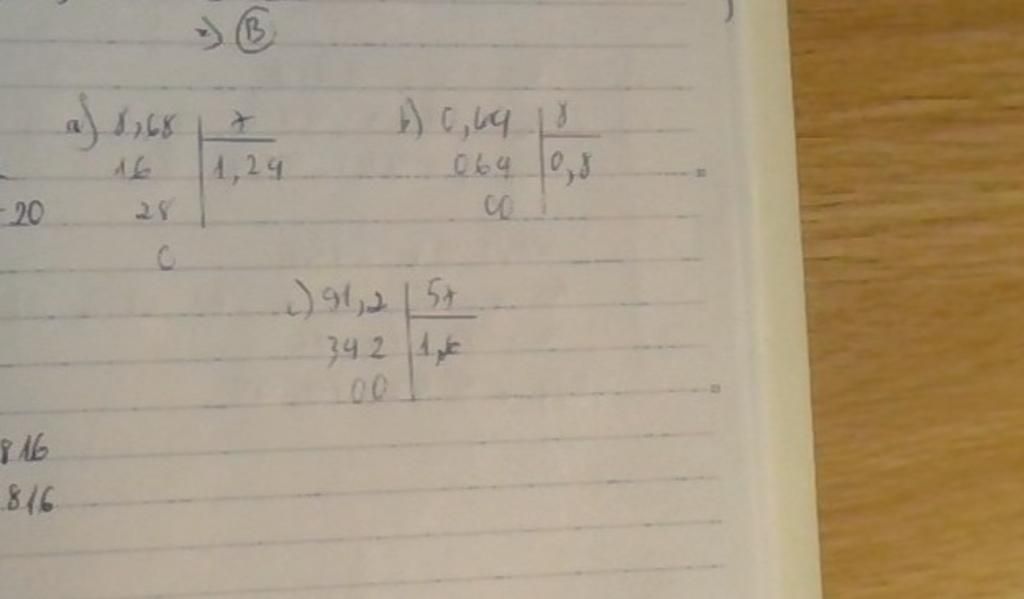 => B
a) 8,68 | 7
16 | 1,24
28
0
b) 0,64 | 8
064 | 0,8
00
-20
c) 91,2 | 57
342 | 1,6
00
816
816